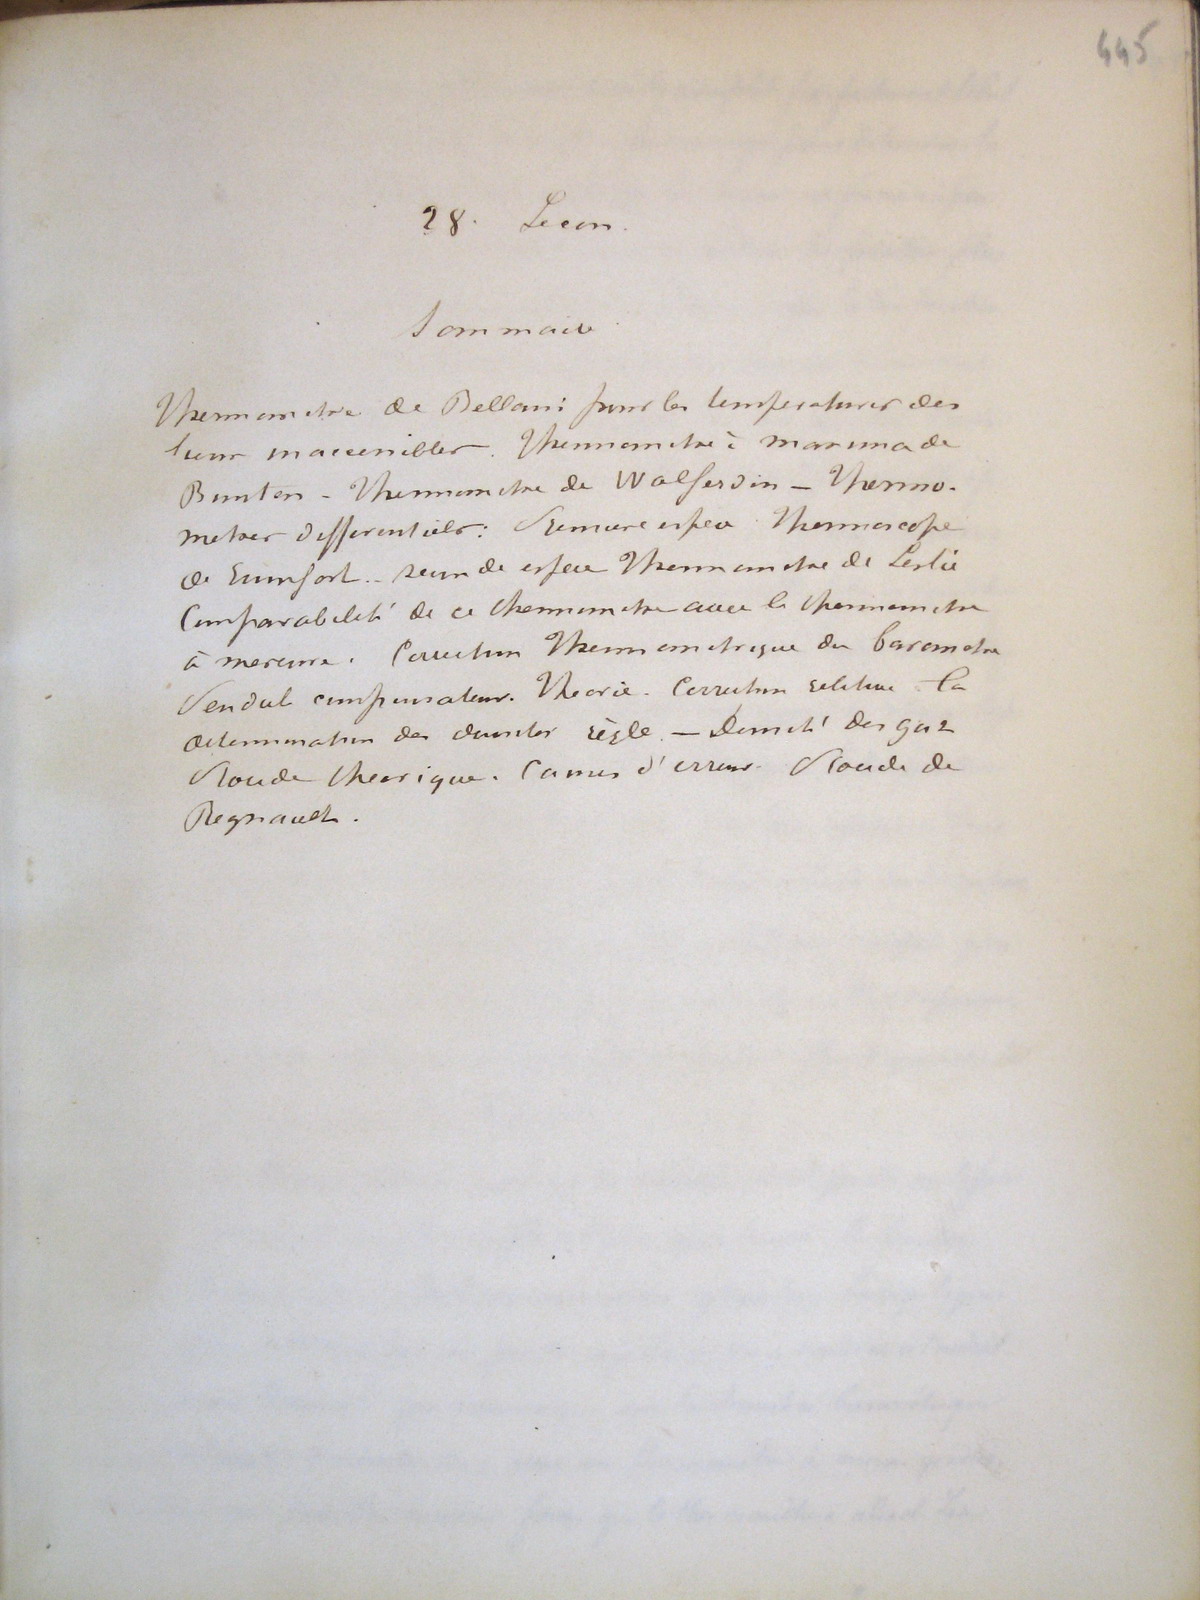 445
28. Lecon.
Sommaire
Thermometre de Bellani pour les temperatures des
lieux inaccessibles. Thermometre à maxima de
Bunten - Thermometre de Walferdin — Thermo-
metres differentiels: Premiere espece Thermoscope
de Rumfort. - seconde espece Thermometre de Leslie
Comparabilité de ce thermometre avec le thermometre
à mercure. Correction Thermometrique du barometre
Pendule compensateur. Theorie. Correction relative la
determination des durées règle. — Densité des gaz
Procede theorique. Causes d'erreur. Procede de
Regnault.